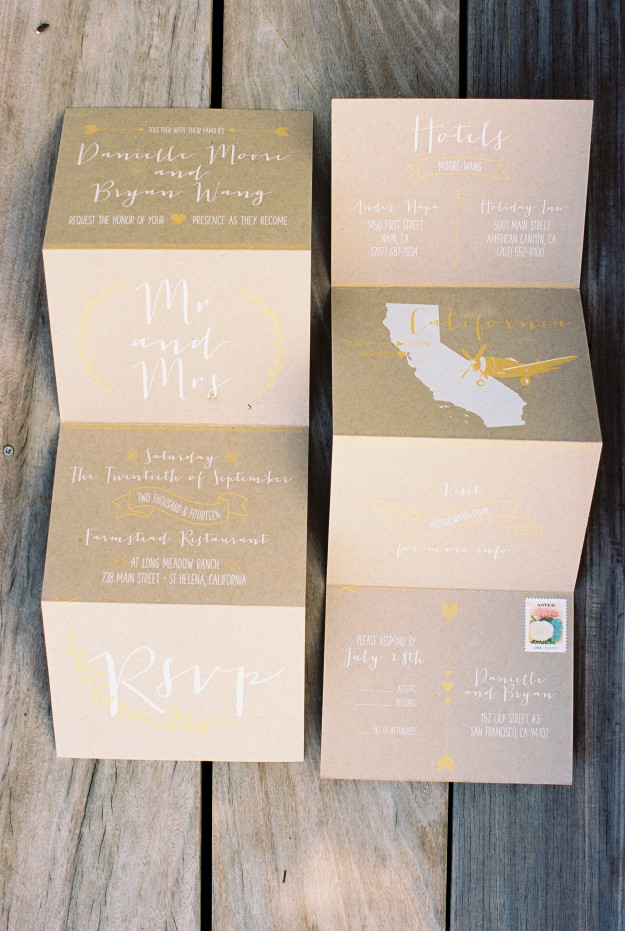 TOGETHER WITH THEIR FAMILIES
Danielle Moore
and
Bryan Wang
REQUEST THE HONOR OF YOUR PRESENCE AS THEY BECOME
Mr
and
Mrs
Saturday
The Twentieth of September
TWO THOUSAND & FOURTEEN
Farmstead Restaurant
AT LONG MEADOW RANCH
738 MAIN STREET - ST HELENA, CALIFORNIA
Rsvp
Hotels
MOORE-WANG
Andaz Napa
1450 FIRST STREET
NAPA, CA
(707) 687-1234
Holiday Inn
5001 MAIN STREET
AMERICAN CANYON, CA
(707) 552-8100
California
Visit
MOOREWANG.COM
for more info
PLEASE RESPOND BY
July 28th
ACCEPTS
DECLINES
NO. OF ATTENDEES
ASTER
Danielle
and Bryan
152 LILY STREET #3
SAN FRANCISCO, CA 94102